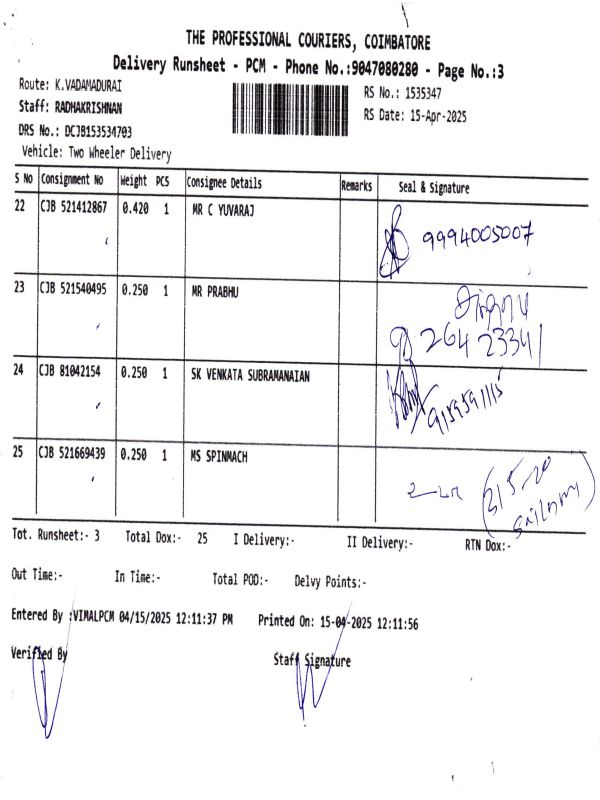 THE PROFESSIONAL COURIERS, COIMBATORE
Delivery Runsheet - PCM - Phone No.:9047080280 - Page No.:3
Route: K.VADAMADURAI
RS No.: 1535347
Staff: RADHAKRISHNAN
RS Date: 15-Apr-2025
DRS No.: DCJB153534703
Vehicle: Two Wheeler Delivery
S No Consignment No Weight PCS Consignee Details Remarks Seal & Signature
22 CJB 521412867 0.420 1 MR C YUVARAJ
9994005007
23 CJB 521540495 0.250 1 MR PRABHU
264 23341
24 CJB 81042154 0.250 1 SK VENKATA SUBRAMANAIAN
9159591115
25 CJB 521669439 0.250 1 MS SPINMACH
Tot. Runsheet:- 3 Total Dox:- 25 I Delivery:- II Delivery:- RTN Dox:-
Out Time:- In Time:- Total POD:- Delvy Points:-
Entered By :VIMALPCM 04/15/2025 12:11:37 PM Printed On: 15-04-2025 12:11:56
Verified By Staff Signature